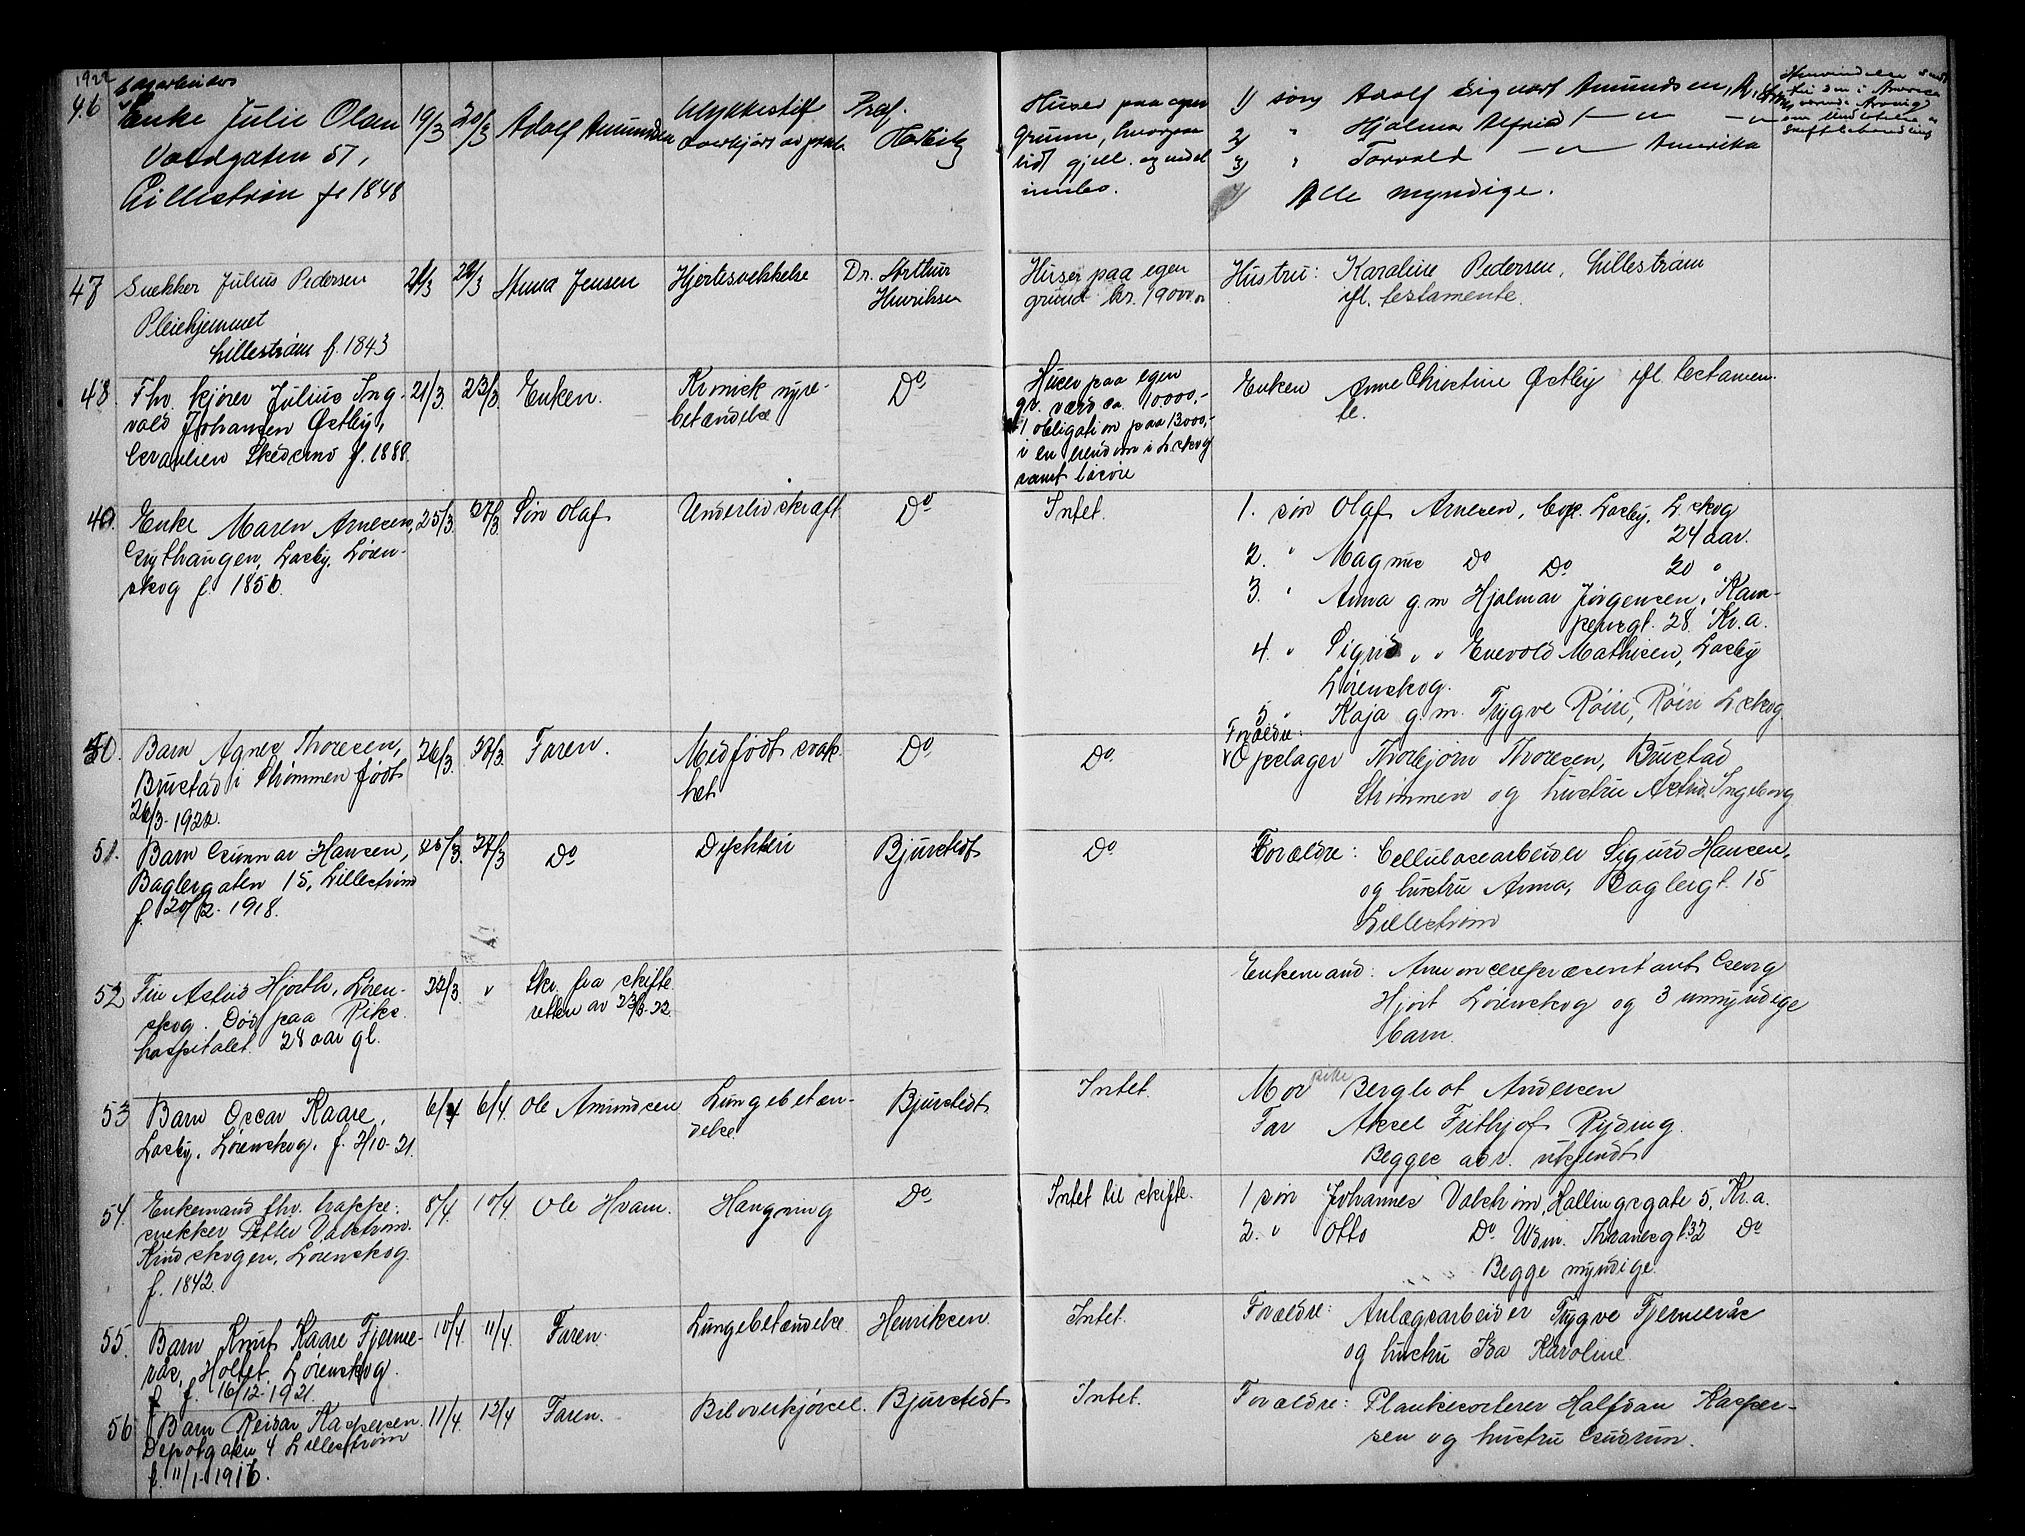 1922
46 Enke Julie Olan
Voldgaten 51,
Lillestrøm f. 1848
19/3 20/3 Adolf Amundsen
Ulykkestilf
overkjørt av
Prof. Harbitz
Huser paa egen
grunn, hvorpaa
lidt gjell. og endel
innbo.
1) søn Adolf Sigvart Amundsen,
2) " Hjalmar Alfred — " —
3) " Torvald — " — Amerika
Alle myndige.
47 Snekker Julius Pedersen
Pleiehjemmet
Lillestrøm f. 1843
21/3 22/3 Anna Jensen Hjertesvekkelse Dr. Arthur
Henriksen
Huser paa egen
grund kr. 19000
Hustru: Karoline Pedersen, Lillestrøm
ifl. testamente.
48. Fhv. kjører Julius Ing-
vald Johansen Østby,
Skedsmo f. 1888.
21/3. 23/3. Enken. Kronisk nyre-
betændelse
Do
Huser paa egen
gr. værd ca. 10000,-
1 obligation paa 13000,-
i en eiendom i L.skog
samt løsøre
Enken Anne Christine Østby ifl. testamen-
te.
49. Enke Maren Arnesen,
Grythaugen, Losby, Løren-
skog f. 1856.
25/3. 27/3. Søn Olaf Underlivskræft Do
Intet.
1. søn Olaf Arnesen, Losby, L.skog
24 aar.
2. " Magnus Do Do 20 "
3. " Anna g.m. Hjalmar Jørgensen, Kam-
pensgt. 28. Kr.a.
4. " Sigrid " " Enevold Mathisen, Losby
Lørenskog.
5 " Kaja g.m. Trygve Røiri, Røiri L.skog
50. Barn Agnes Thoresen,
Brustad i Strømmen født
26/3-1922.
26/3. 27/3. Faren. Medfødt svak-
het
Do Do
Forældre:
Opslager Thorbjørn Thoresen, Brustad
Strømmen og hustru Astrid Ingeborg
51. Barn Gunnar Hansen,
Baglergaten 15, Lillestrøm
f. 20/2-1918.
25/3. 27/3 Do Difteri Bjurstedt Do
Forældre: Cellulosearbeider Sigurd Hansen,
og hustru Anna, Baglergt. 15
Lillestrøm
52 Fru Astrid Hjorth, Løren-
skog. Død paa Riks-
hospitalet 28 aar gl.
22/3. " Skr. fra skifte-
retten av 23/3-22.
Enkemand: Annoncerepræsentant Georg
Hjort Lørenskog og 3 umyndige
barn.
53 Barn Oscar Kaare,
Losby, Lørenskog. f. 2/10-21.
6/4 6/4. Ole Amundsen Lungebetæn-
delse.
Bjurstedt Intet.
Mor pike Bergliot Andersen
Far Aksel Frithjof Ryding.
Begges adr. ukjendt
54. Enkemand fhv. trappe-
snekker Petter Valstrøm.
Kindskogen, Lørenskog.
f. 1842.
8/4. 10/4. Ole Hvam. Hængning Do
Intet til skifte.
1 søn Johannes Valstrøm, Hallingsgate 5, Kr.a.
2. " Otto Do Edm. Thranesgt. 32 Do
Begge myndige.
55. Barn Knut Kaare Fjerme-
ros, Holtet, Lørenskog.
f. 16/12-1921.
10/4. 11/4. Faren. Lungebetændelse. Henriksen Intet.
Forældre: Anlægsarbeider Trygve Fjermeros
og hustru Ida Karoline.
56 Barn Reidar Kaspersen.
Depotgaten 4 Lillestrøm
f. 11/1-1916.
11/4. 13/4 Faren. Biloverkjørsel. Bjurstedt Intet.
Forældre: Plankesorterer Halfdan Kasper-
sen og hustru Gudrun.